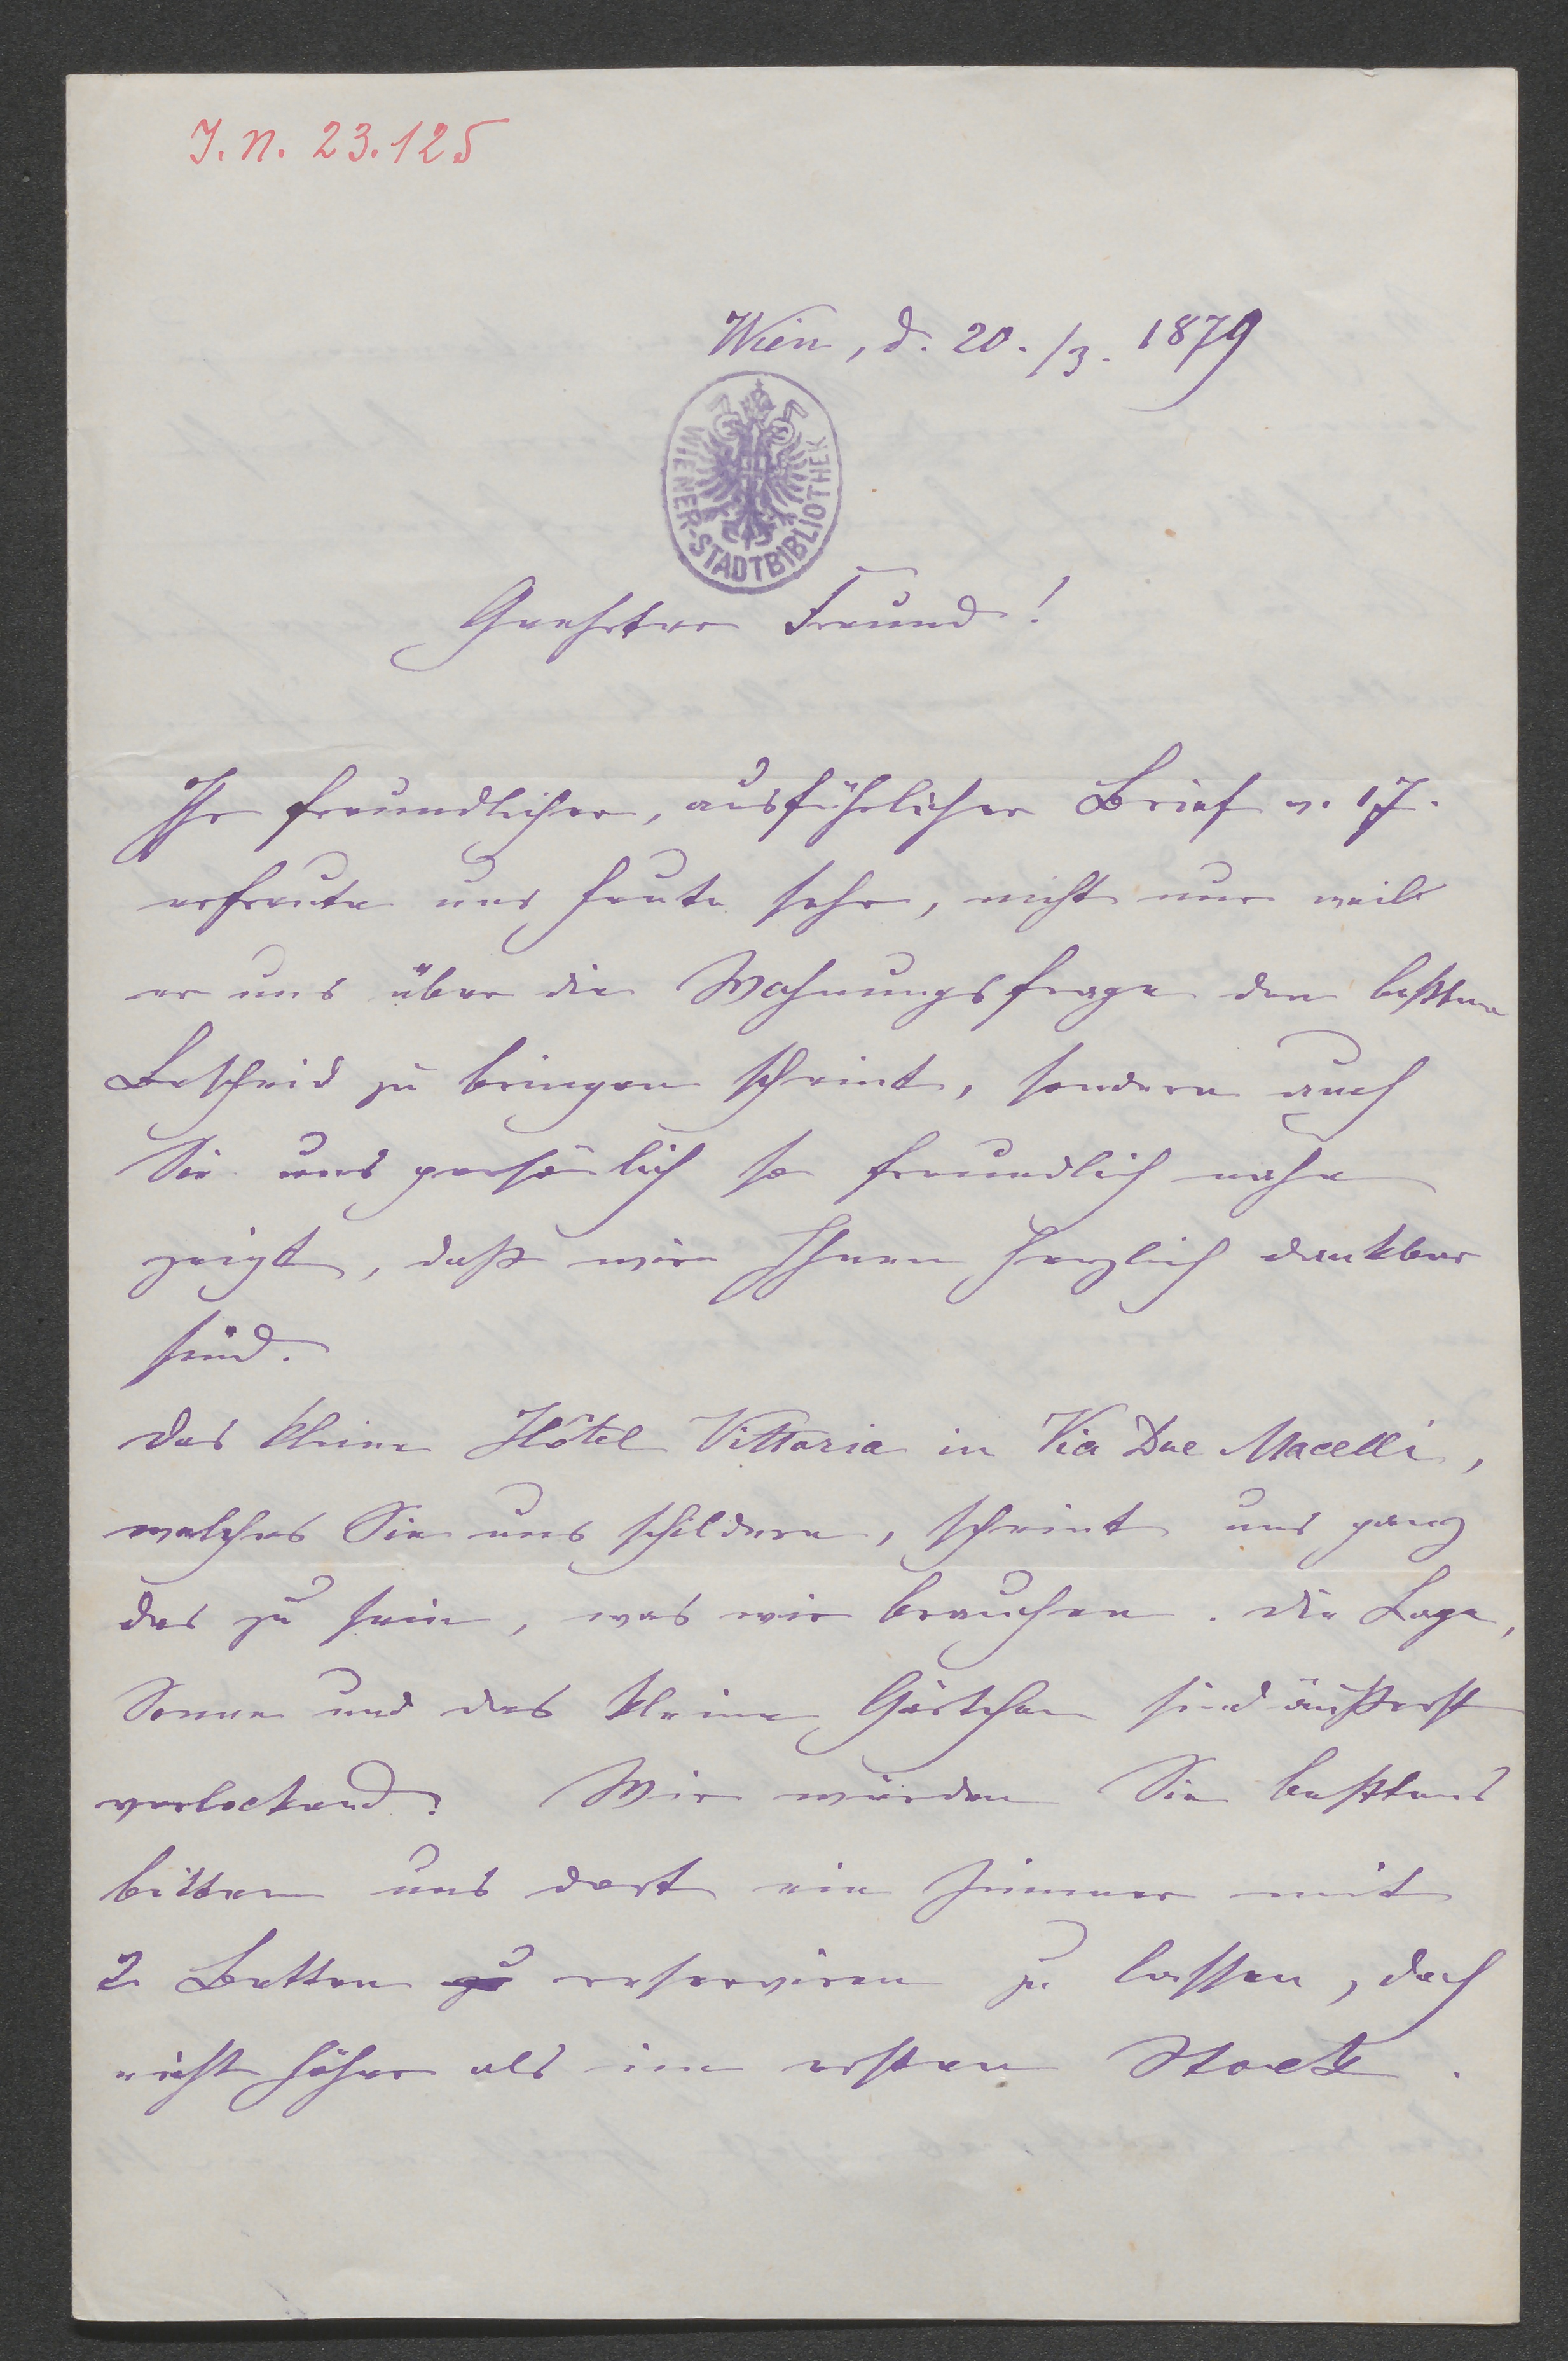 J. N. 23.125
Wien, d. 20./3. 1879
WIENER-STADTBIBLIOTHEK
Geehrter Freund!
Ihr freundlicher, ausführlicher Brief v. 17.
erfreute uns heute sehr, nicht nur weil
er uns über die Wohnungsfrage den beßten
Bescheid zu bringen scheint, sondern auch
Sie uns persönlich so freundlich nahe
zeigt, daß wir Ihnen herzlich dankbar
sind.
Das kleine Hôtel Vittoria in Via Due Macelli,
welches Sie uns schildern, scheint uns ganz
das zu sein, was wir brauchen. Die Lage,
Sonne und das kleine Gärtchen sind äußerst
verlockend. Wir würden Sie beßtens
bitten uns dort ein Zimmer mit
2 Betten zu reserviren zu lassen, doch
nicht höher als im ersten Stock.